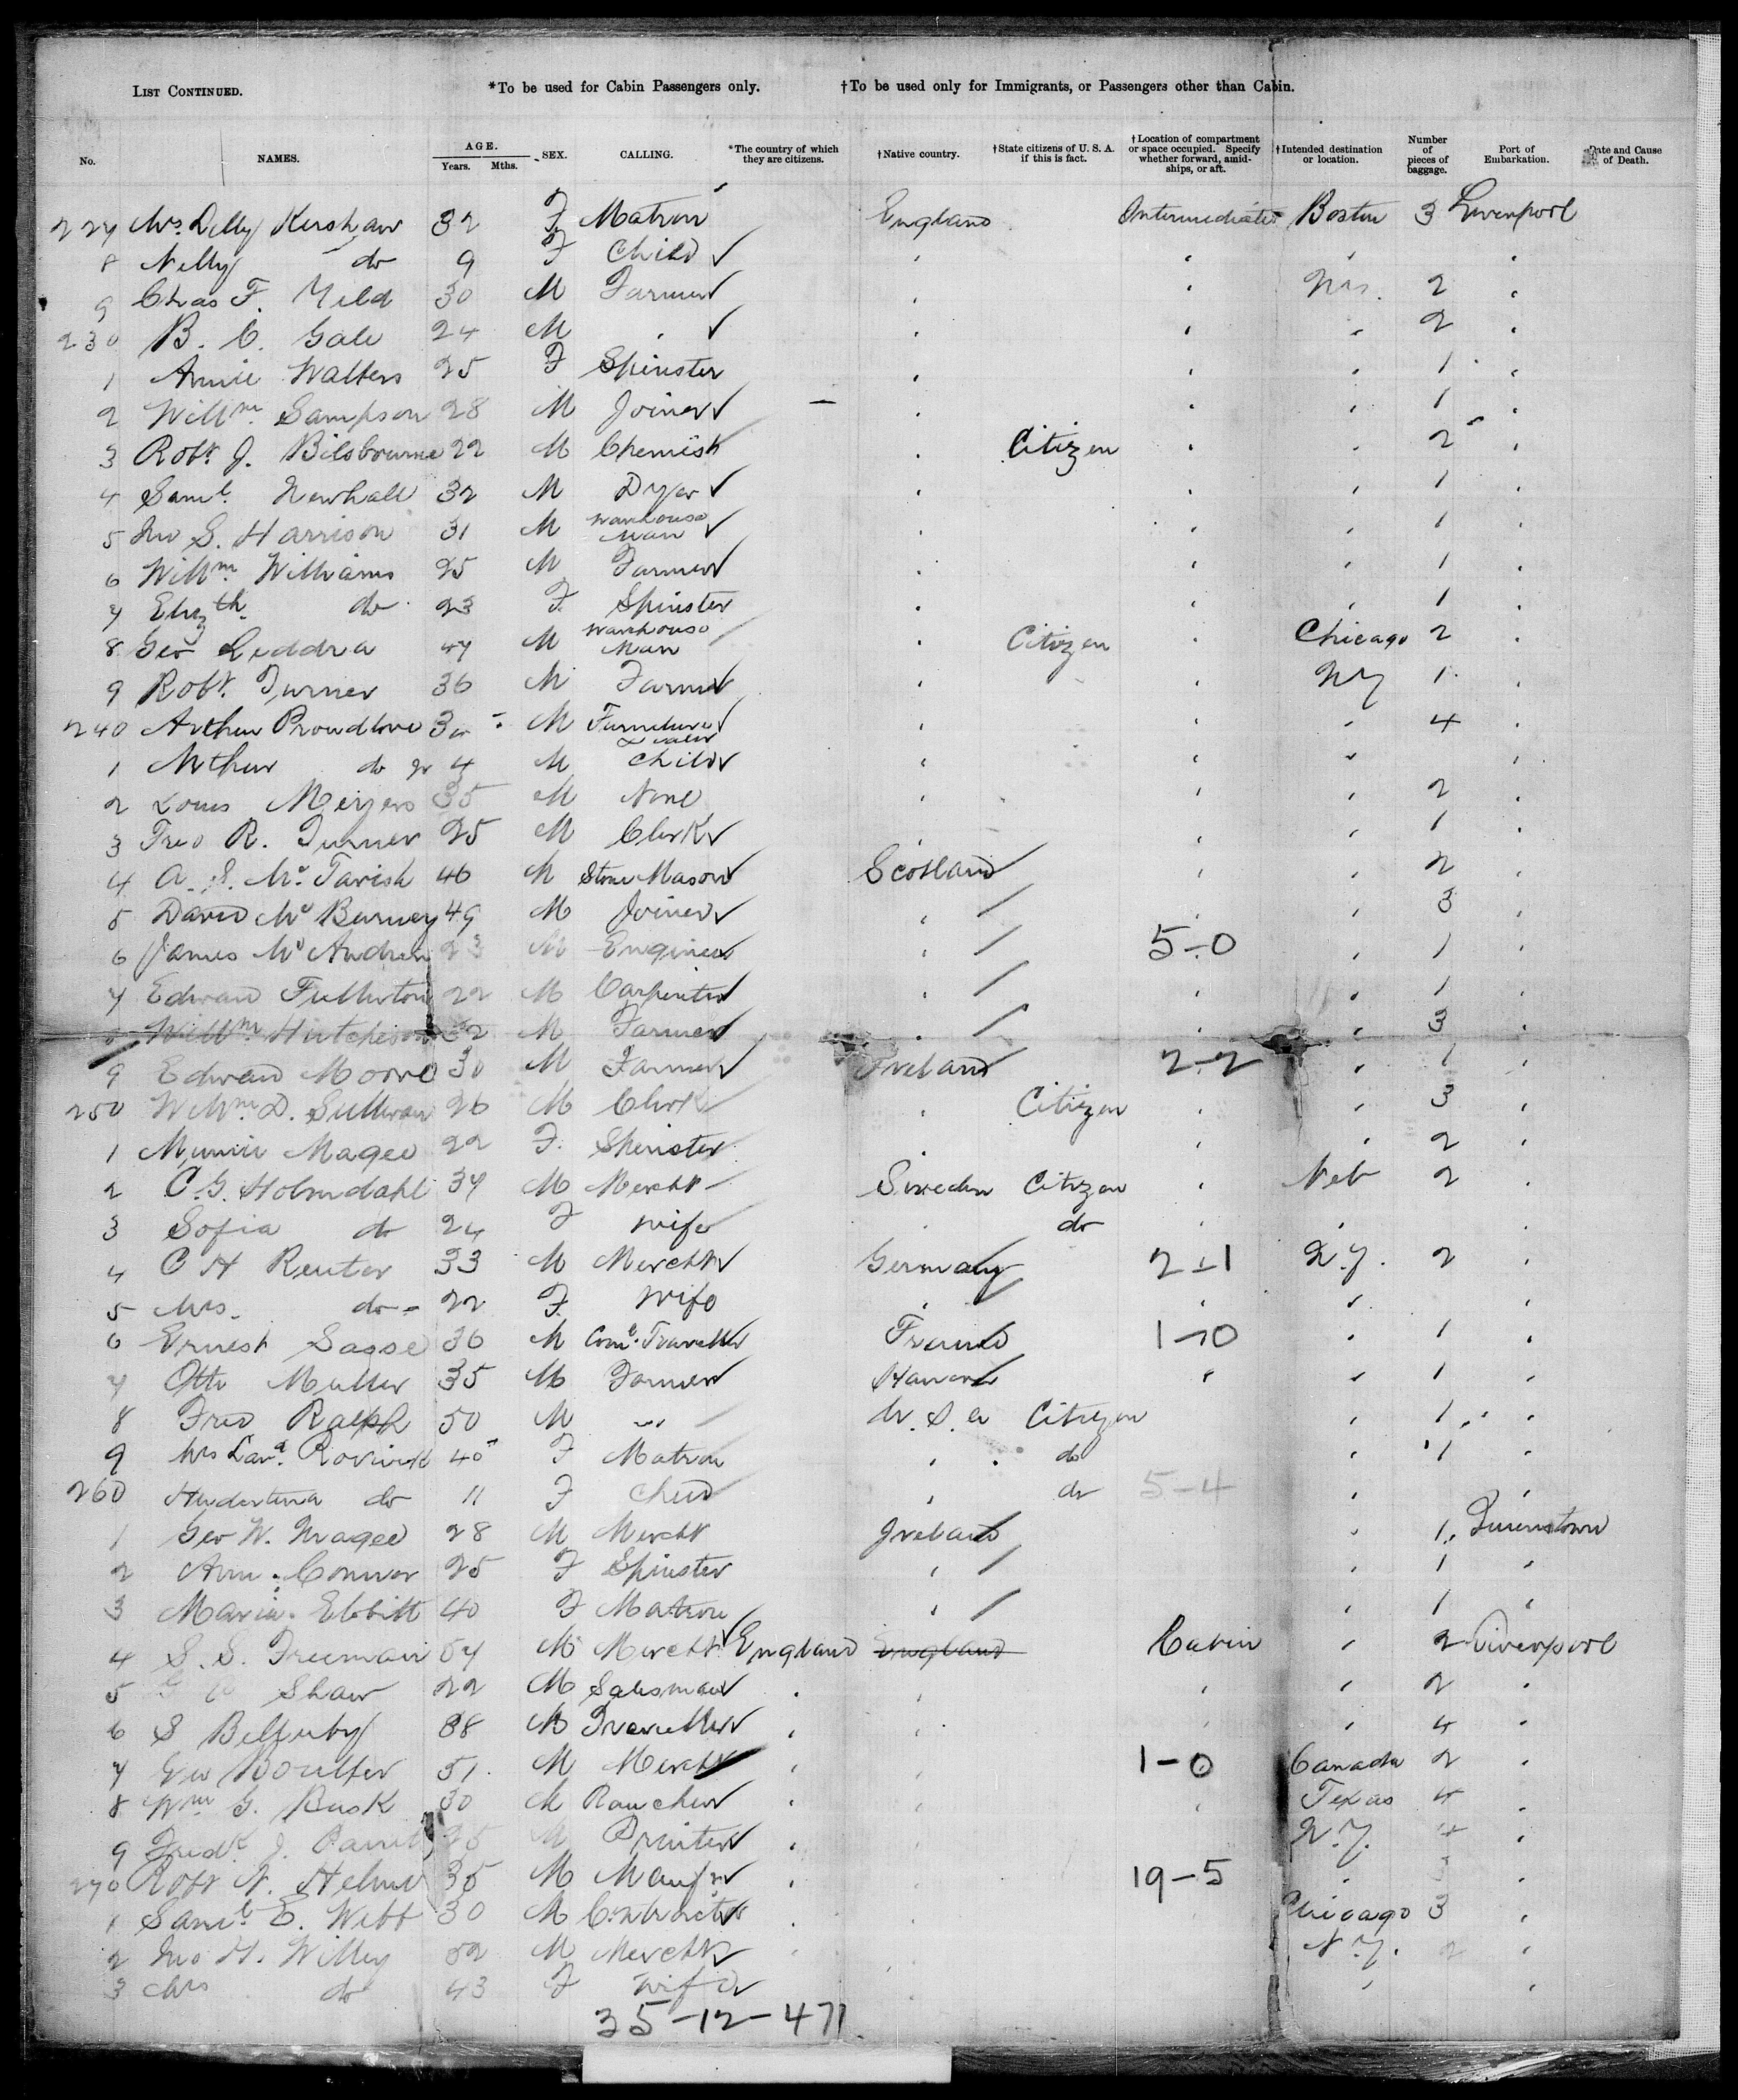 LIST CONTINUED. *To be used for Cabin Passengers only. †To be used only for Immigrants, or Passengers other than Cabin.
No. NAMES. AGE. Years. Mths. SEX. CALLING. *The country of which they are citizens. †Native country. †State citizens of U. S. A. if this is fact. †Location of compartment or space occupied. Specify whether forward, amidships, or aft. †Intended destination or location. Number of pieces of baggage. Port of Embarkation. Date and Cause of Death.
227 Mrs. Kershaw 32 F Matron England Intermediate Boston 3 Liverpool
8 Nelly do 9 F Child
9 Chas F. 30 M Farmer 2
230 B. C. Gale 24 M 2
1 Annie Walters 25 F Spinster 1
2 Willm. Sampson 28 M Joiner 1
3 Robt. J. Bilsbourne 22 M Chemist Citizen 2
4 Saml. Newhall 32 M Dyer 1
5 Jno S. Harrison 31 M Warehouse man 1
6 Willm. Williams 25 M Farmer 1
7 Elizth. do 23 F. Spinster 1
8 Geo Leddra 47 M Warehouse Man Citizen Chicago 2
9 Robt. Turner 36 M Farmer NY 1
240 Arthur Proudlove M Furniture Dealer 4
1 Arthur do Jr 4 M Child
2 Louis Meyers 35 M None 2
3 Fred R. Turner 25 M Clerk 1
4 A. S. Mc Tavish 46 M Stone Mason Scotland 2
5 David Mc Burney 49 M Joiner 3
6 James Mc Andrew 23 M Engineer 5-0 1
7 Edward Fullerton 22 M Carpenter 1
8 Willm. Hutcheson 32 M Farmer 3
9 Edward Moore 30 M Farmer Ireland 2-2 1
250 Willm. D. Sullivan 26 M Clerk Citizen 3
1 Minnie Magee 22 F. Spinster 2
2 C. G. Holmdahl 37 M Mercht Sweden Citizen Neb 2
3 Sofia do 24 F Wife do
4 C H Reuter 33 M Mercht Germany 2-1 N.Y. 2
5 Mrs. do 22 F. Wife
6 Ernest Sasse 36 M Coml. Traveller France 1-0 1
7 Otto Muller 35 M Farmer 1
8 Fred Ralph 50 M U. S. A Citizen 1
9 Mrs 40 F Matron do 1
260 do 11 F Child do 5-4
1 Geo W. Magee 28 M Mercht Ireland 1 Queenstown
2 Ann Connor 25 F Spinster 1
3 Maria Ebbitt 40 F Matron 1
4 S. S. Freeman M Mercht England England Cabin 2 Liverpool
5 Shaw 22 M Salesman 2
6 S Bellerby 38 M Traveller 4
7 Geo Boulter 51 M Mercht 1-0 Canada 2
8 Wm G. Busk 30 M Rancher Texas 4
9 Fredk. J. M Printer N.Y. 4
270 Robt N. Helme 35 M Manfr 19-5
1 Saml. E. Webb 30 M Contractor Chicago 3
2 Jno H. Willey 52 M Mercht N.Y. 2
3 Mrs do 43 F Wife
35-12-471